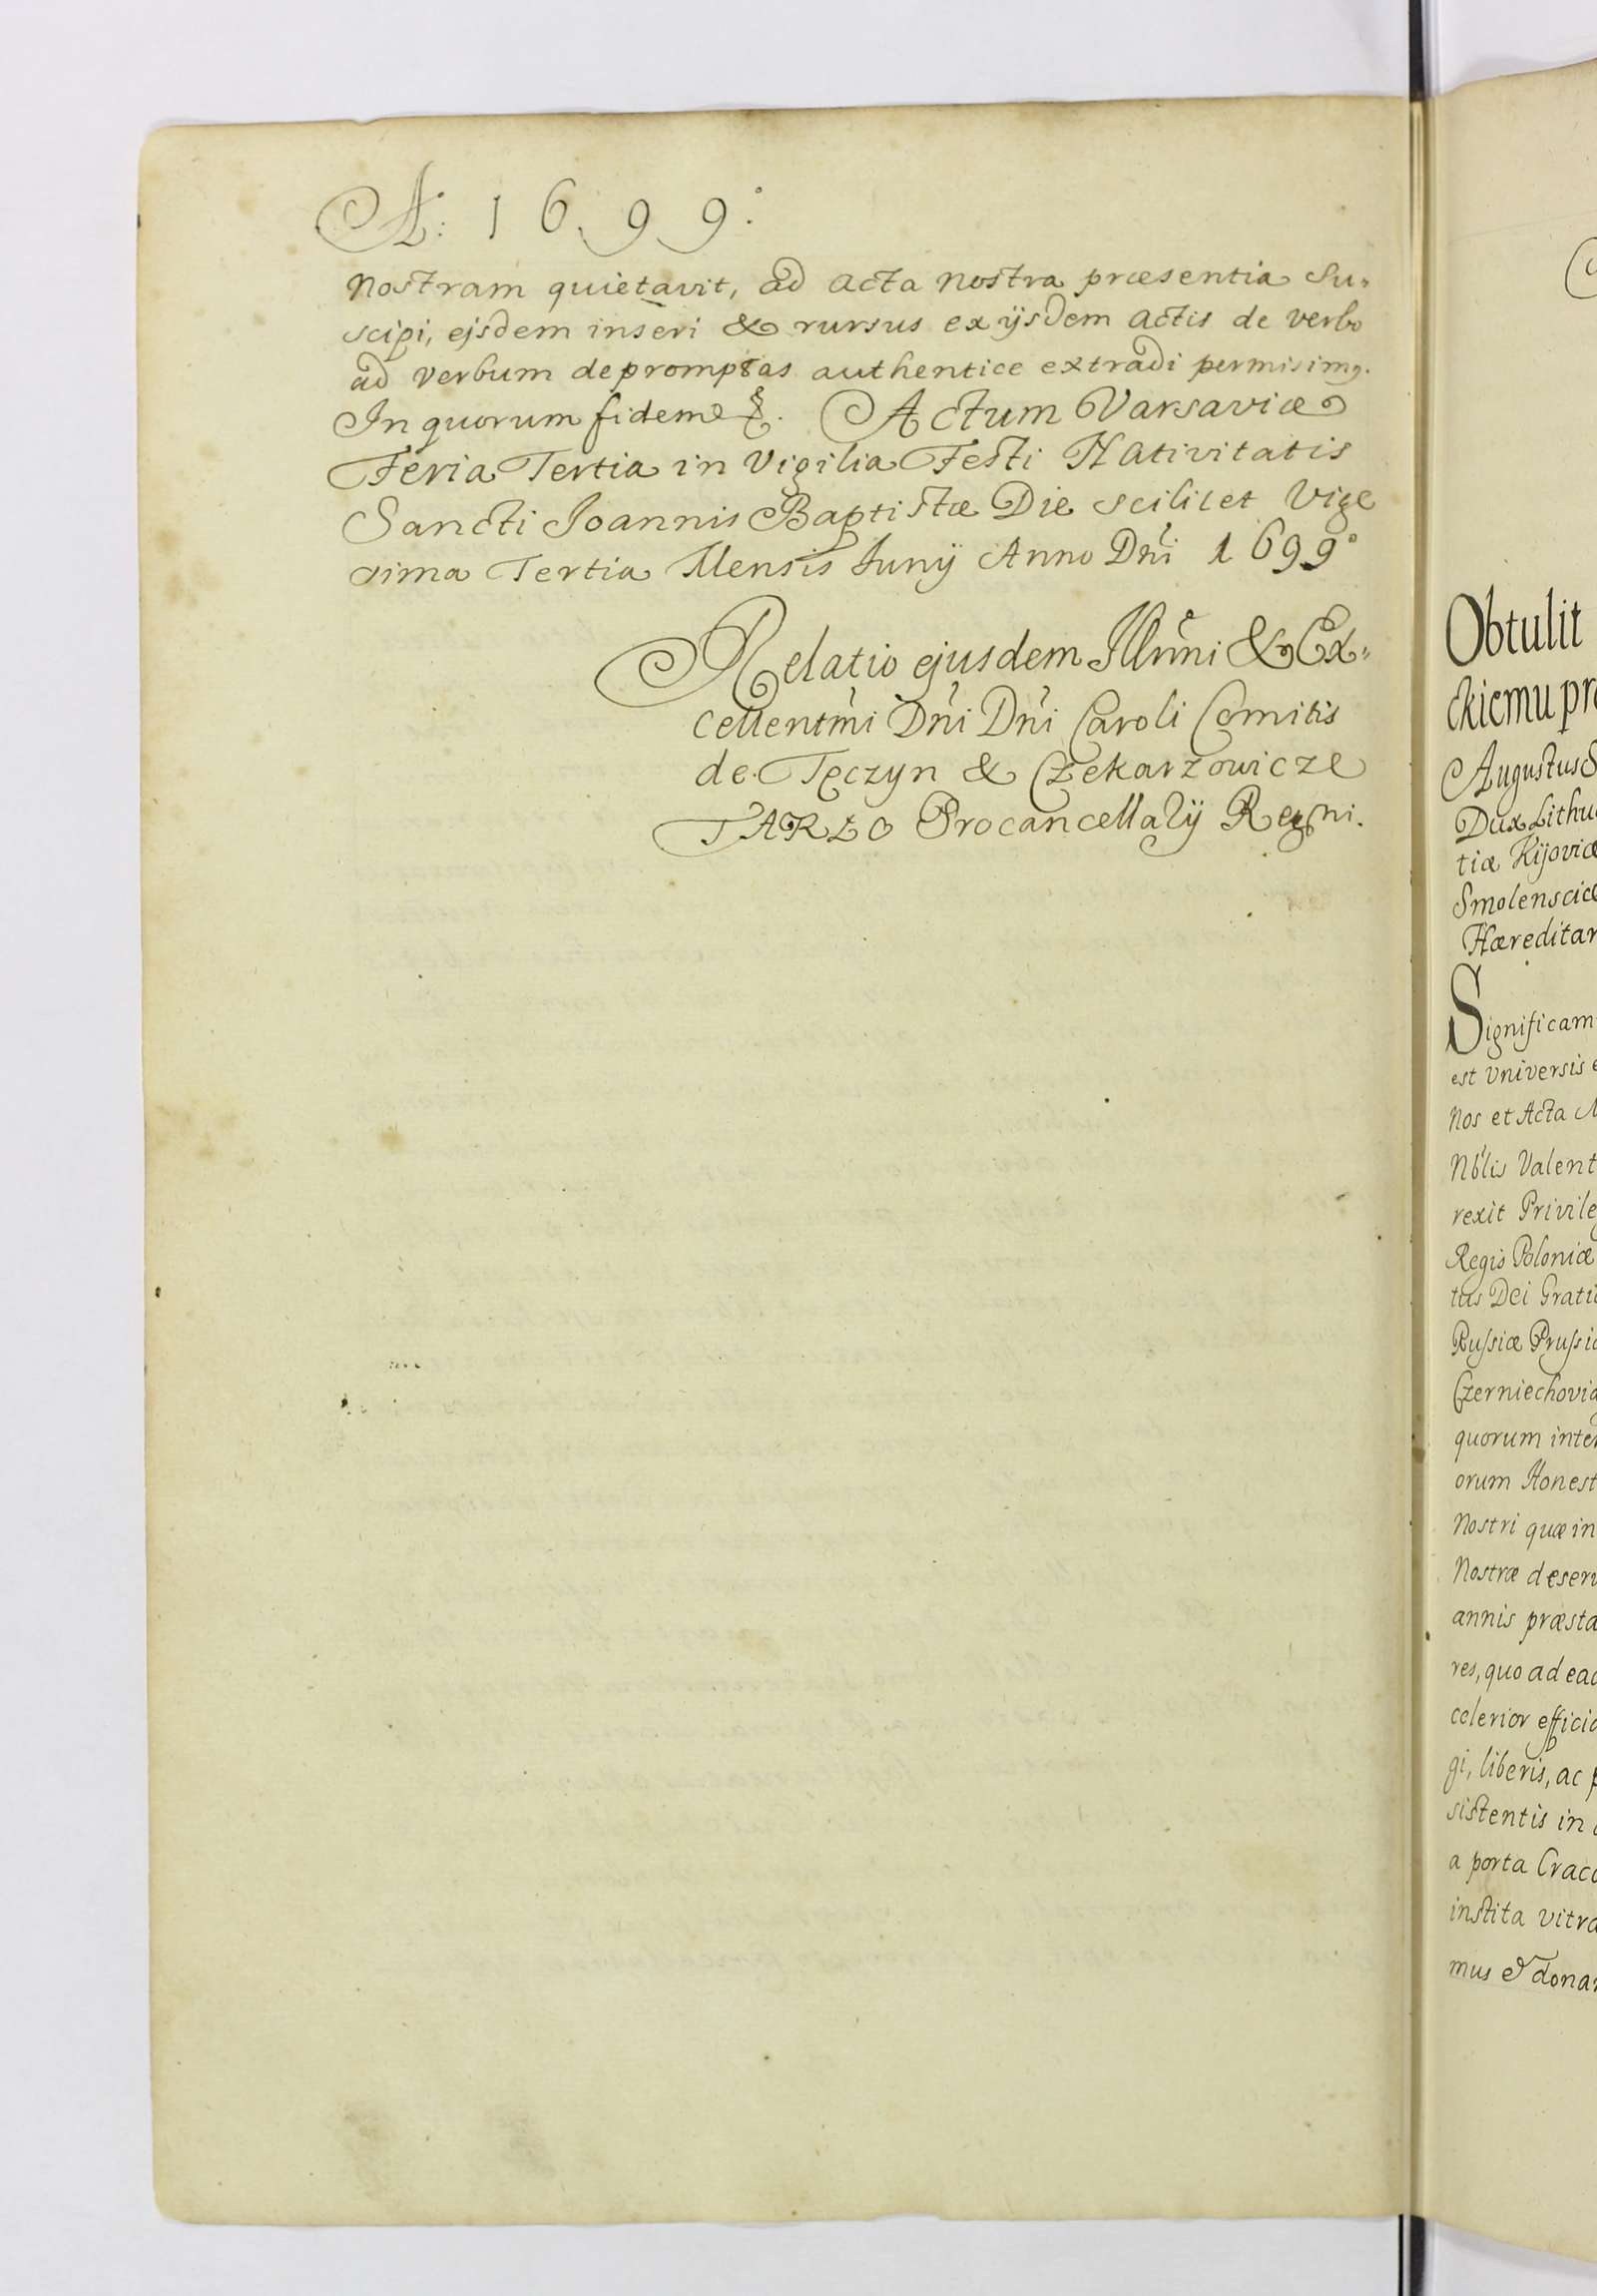 A: 1699:
nostram quietavit, ad acta nostra præsentia su-
scipi, ejsdem inseri & rursus ex ijsdem actis de verbo
ad verbum depromptas authentice extradi permisimq.
In quorum fidem &. Actum Varsaviæ
Feria Tertia in Vigilia Festi Nativitatis
Sancti Joannis Baptistæ Die scilicet Vige
sima Tertia Mensis Juny Anno Dni 1699°
Relatio ejusdem Illmi & Ex-
cellentmi Dni Dni Caroli Comitis
de Tęczyn & Czekarzowicze
TARŁO Procancellarÿ Regni.
Obtulit
ckiemu pr
Augustus S
Dux Lithu
tiæ Kijoviæ
Smolensciæ
Hæreditar
Significam
est Universis e
Nos et Acta
Nblis Valent
rexit Privile
Regis Poloniæ
tus Dei Grati
Russiæ Prussi
Czerniechovi
quorum inte
orum Honest
Nostri quæ in
Nostræ deserv
annis præsta
res, quo ad ea
celerior effici
gi, liberis, ac p
sistentis in
a porta Crac
instita vitr
mus & dona